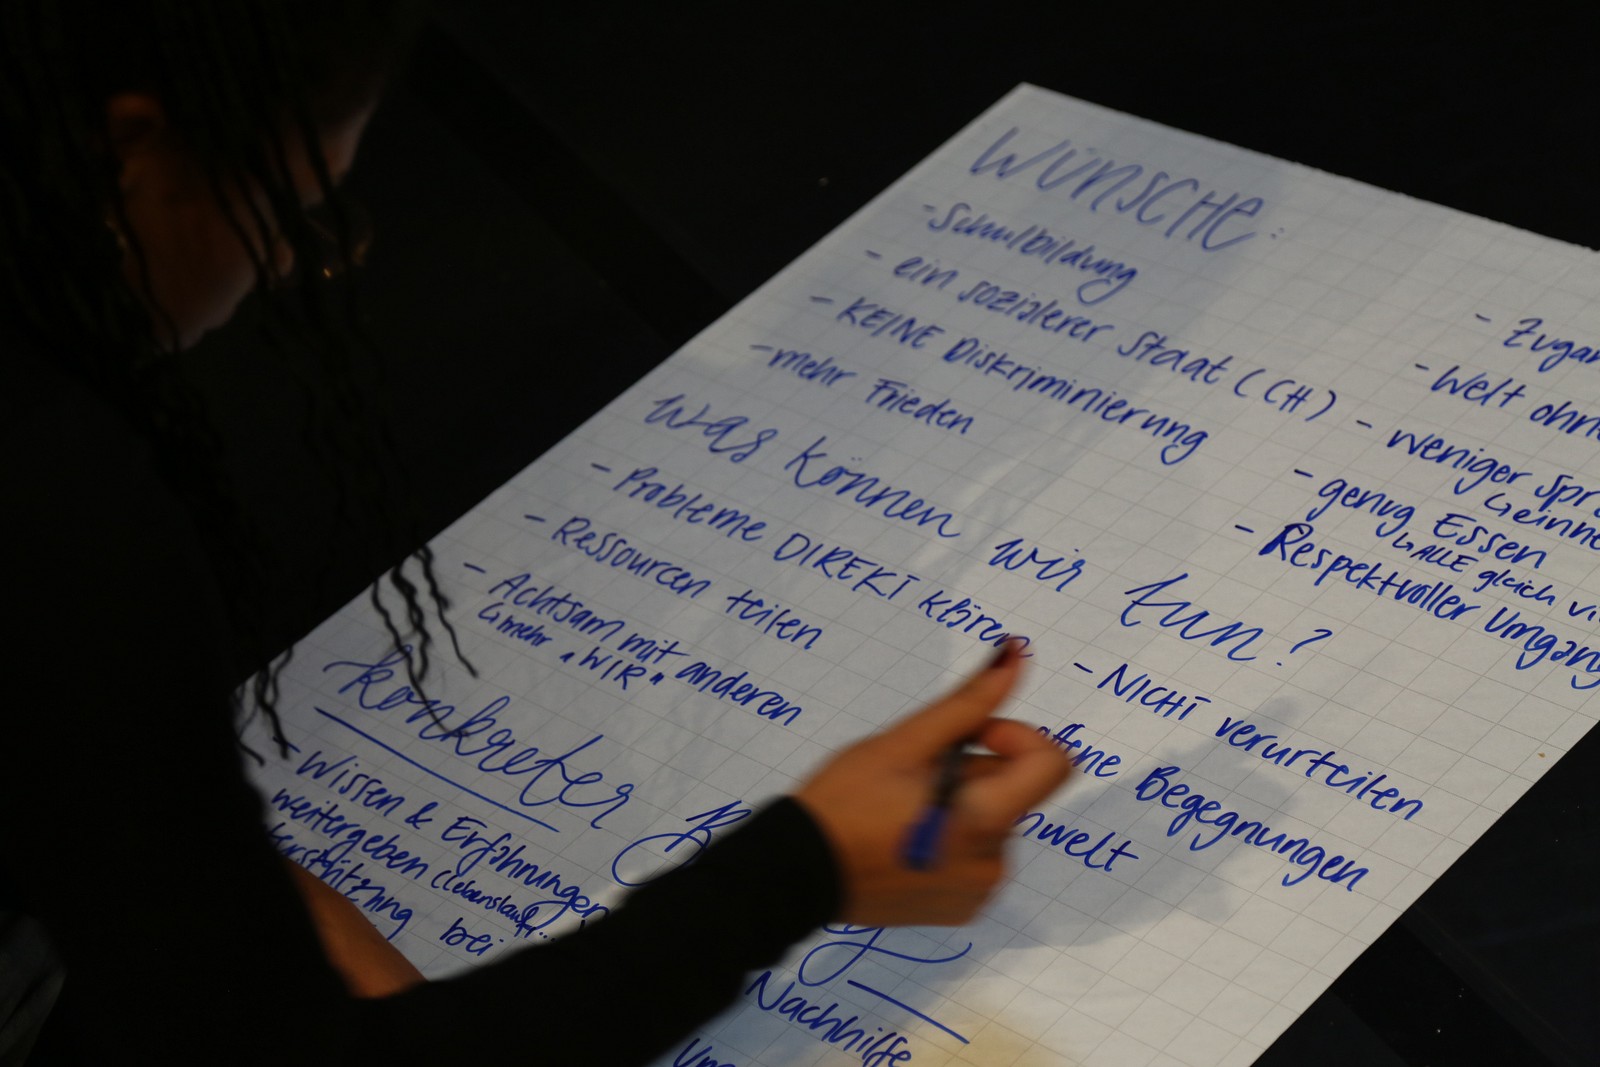 WÜNSCHE:
- Schulbildung
- ein sozialerer Staat (CH)
- KEINE Diskriminierung
- mehr Frieden
-
- Welt
- weniger
- genug Essen
↳ ALLE gleich
- Respektvoller Umgang
Was können wir tun?
- Probleme DIREKT klären
- Ressourcen teilen
- Achtsam mit anderen
↳ mehr "WIR"
- NICHT verurteilen
offene Begegnungen
konkreter
- Wissen & Erfahrungen
weitergeben (Lebenslauf...
bei
Nachhilfe